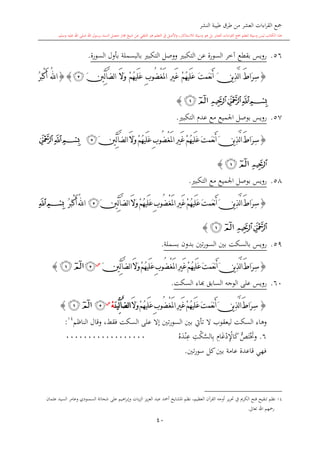 جمع القراءات العشر من طرق طيبة النشر
٥٦. رويس بقطع آخر السورة عن التكبير ووصل التكبير بالبسملة بأول السورة.
﴿ صِرَٰطَ ٱلَّذِينَ أَنۡعَمۡتَ عَلَيۡهُمۡ غَيۡرِ ٱلۡمَغۡضُوبِ عَلَيۡهُمۡ وَلَا ٱلضَّآلِّينَ ۝ ﴾ ﴿ ٱللَّهُ أَكۡبَرُ
بِسۡمِ ٱللَّهِ ٱلرَّحۡمَٰنِ ٱلرَّحِيمِ الٓمٓ ۝ ﴾
٥٧. رويس بوصل الجميع مع عدم التكبير.
﴿ صِرَٰطَ ٱلَّذِينَ أَنۡعَمۡتَ عَلَيۡهُمۡ غَيۡرِ ٱلۡمَغۡضُوبِ عَلَيۡهُمۡ وَلَا ٱلضَّآلِّينَ ۝ بِسۡمِ ٱللَّهِ ٱلرَّحۡمَٰنِ
ٱلرَّحِيمِ الٓمٓ ۝ ﴾
٥٨. رويس بوصل الجميع مع التكبير.
﴿ صِرَٰطَ ٱلَّذِينَ أَنۡعَمۡتَ عَلَيۡهُمۡ غَيۡرِ ٱلۡمَغۡضُوبِ عَلَيۡهُمۡ وَلَا ٱلضَّآلِّينَ ۝ ٱللَّهُ أَكۡبَرُ بِسۡمِ ٱللَّهِ
ٱلرَّحۡمَٰنِ ٱلرَّحِيمِ الٓمٓ ۝ ﴾
٥٩. رويس بالسكت بين السورتين بدون بسملة.
﴿ صِرَٰطَ ٱلَّذِينَ أَنۡعَمۡتَ عَلَيۡهُمۡ غَيۡرِ ٱلۡمَغۡضُوبِ عَلَيۡهُمۡ وَلَا ٱلضَّآلِّينَ ۝ س الٓمٓ ۝ ﴾
٦٠. رويس على الوجه السابق بهاء السكت.
﴿ صِرَٰطَ ٱلَّذِينَ أَنۡعَمۡتَ عَلَيۡهُمۡ غَيۡرِ ٱلۡمَغۡضُوبِ عَلَيۡهُمۡ وَلَا ٱلضَّآلِّينَهۡ ۝ س الٓمٓ ۝ ﴾
وهاء السكت ليعقوب لا تأتي بين السورتين إلا على السكت فقط، وقال الناظم١٤:
٦. وَتَخْتَصُّ كَالإِدْغَامِ بِالسَّكْتِ عِنْدَهُ ٠٠٠٠٠٠٠٠٠٠٠٠٠٠٠٠٠
فهي قاعدة عامة بين كل سورتين.
١٤ نظم تنقيح فتح الكريم في تحرير أوجه القرآن العظيم، نظم المشايخ أحمد عبد العزيز الزيات وإبراهيم علي شحاتة السمنودي وعامر السيد عثمان
رحمهم الله تعالى.
٤٠